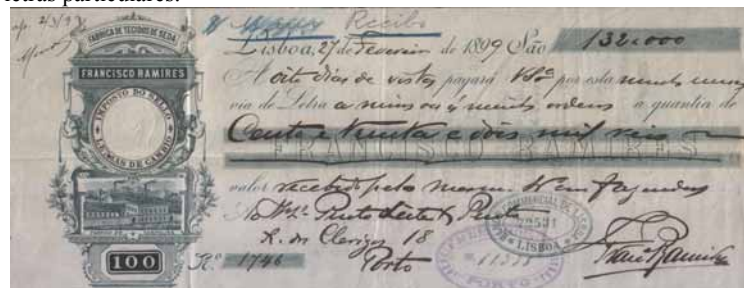 letras particulares.
Recibo
FABRICA DE TECIDOS DE SEDA
FRANCISCO RAMIRES
IMPOSTO DO SELLO
LETRAS DE CAMBIO
100
Lisboa, 27 de Fevereiro de 1899 São 132.000
A oito dias de vista pagará V.Sª por esta
via de Letra a mim ou á minha ordem a quantia de
Cento e trinta e dois mil reis
FRANCISCO RAMIRES
valor recebido pelo mesmo em fazendas
Pinto Leite & Pinto
R. dos Clerigos 18
Nº 1746 Porto
LISBOA
PORTO
Franco Ramires